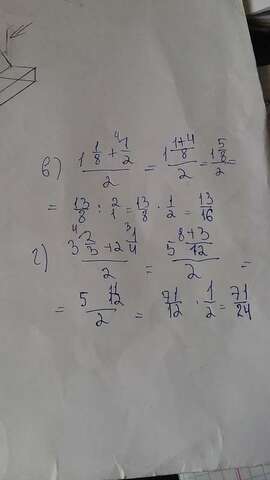 в) (1 1/8 + ⁴⁾1/2)/2 = (1 (1+4)/8)/2 = (1 5/8)/2 =
= 13/8 : 2/1 = 13/8 · 1/2 = 13/16
г) (3 ⁴⁾2/3 + 2 ³⁾1/4)/2 = (5 (8+3)/12)/2 =
= (5 11/12)/2 = 71/12 · 1/2 = 71/24